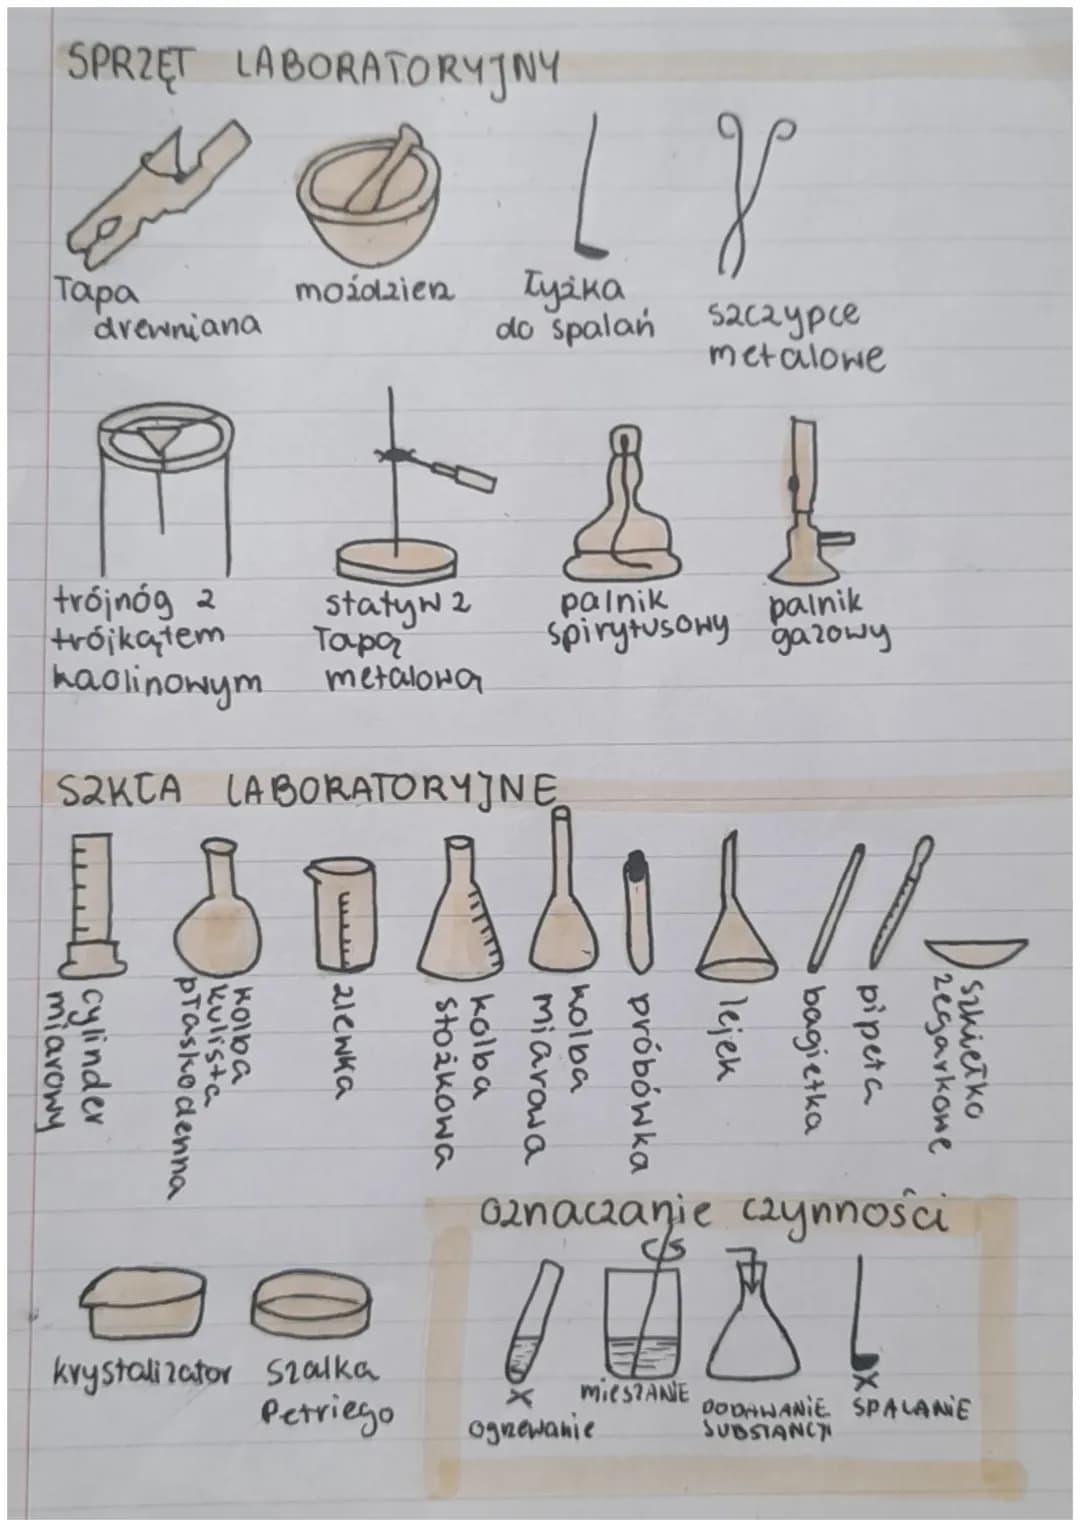 SPRZĘT LABORATORYJNY
Łapa
drewniana
moździerz
Łyżka
do spalań
szczypce
metalowe
trójnóg z
trójkątem
kaolinowym
statyw z
Łapą
metalową
palnik
spirytusowy
palnik
gazowy
SZKŁA LABORATORYJNE
cylinder
miarowy
kolba
kulista
płaskodenna
zlewka
kolba
stożkowa
kolba
miarowa
próbówka
lejek
bagietka
pipeta
szkiełko
zegarkowe
oznaczanie czynności
krystalizator
szalka
Petriego
ogrzewanie
MIESZANIE
DODAWANIE
SUBSTANCJI
SPALANIE